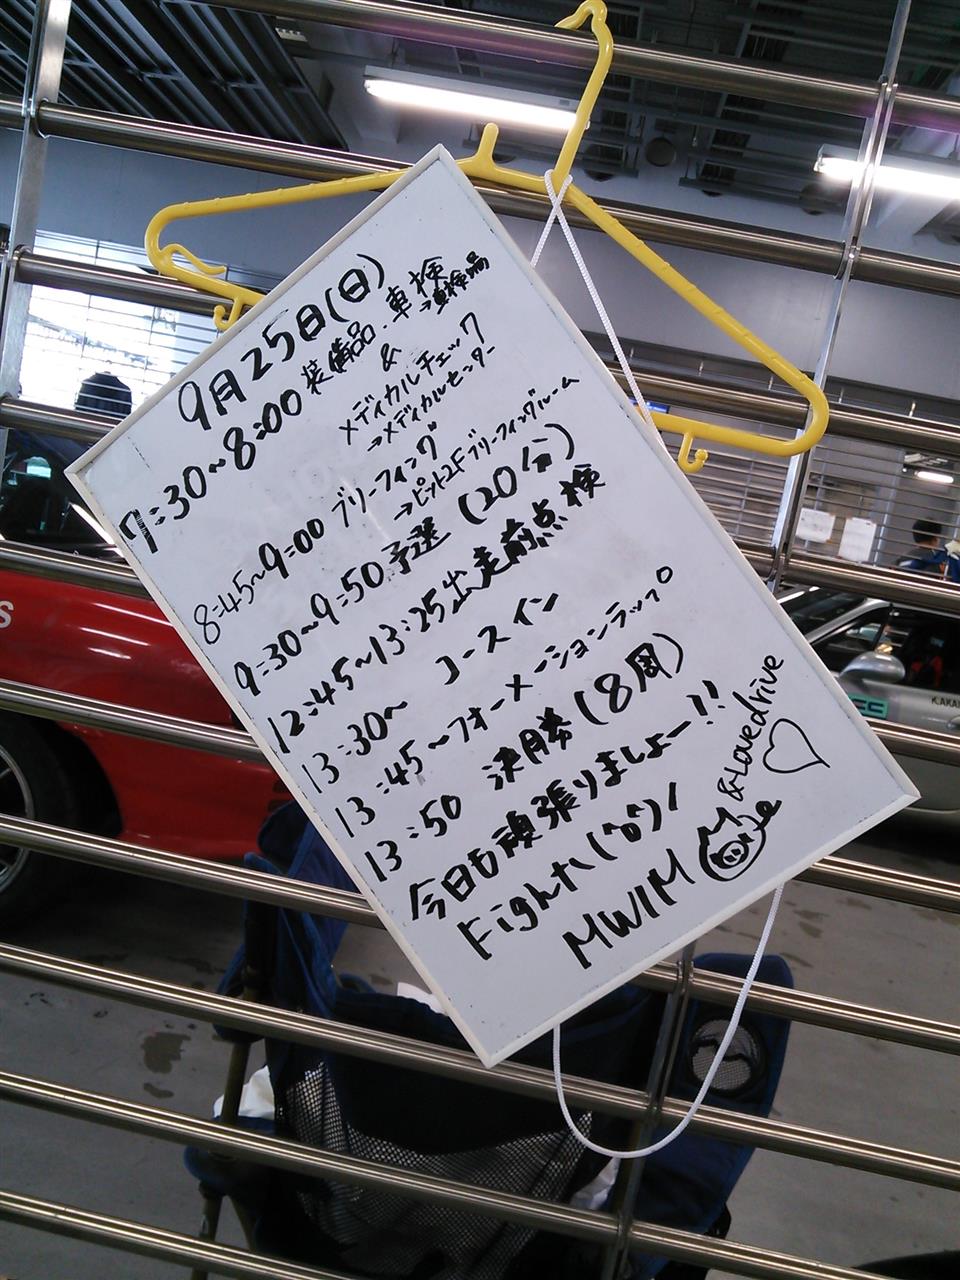 9月25日(日)
7:30~8:00 装備品・車検
→車検場
&
メディカルチェック
→メディカルセンター
8:45~9:00 ブリーフィング
→ピット2F ブリーフィングルーム
9:30~9:50 予選 (20分)
12:45~13:25 出走前点検
13:30~ コースイン
13:45~フォーメーションラップ
13:50 決勝 (8周)
今日も頑張りましょー!!
MWIM
&Lovedrive
S
K.AKAI